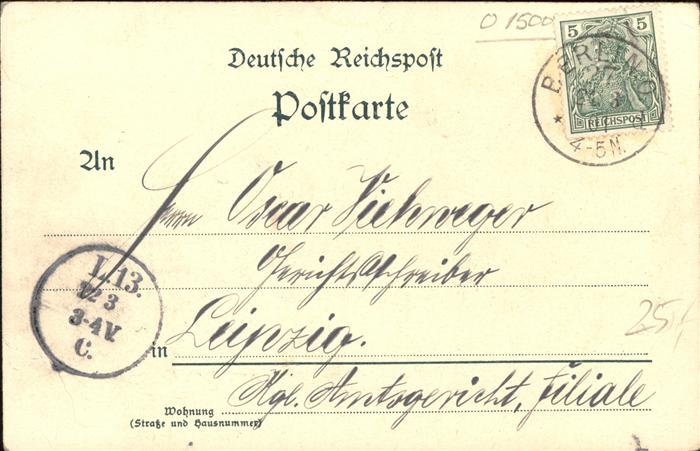 5 5
REICHSPOST
BERLIN O
4-5N.
Deutsche Reichspost
Postkarte
An
Herrn Oscar Viehweger
Gerichtsschreiber
in Leipzig.
Kgl. Amtsgericht, Filiale
Wohnung
(Straße und Hausnummer)
L 13.
12 3
3-4V.
C.